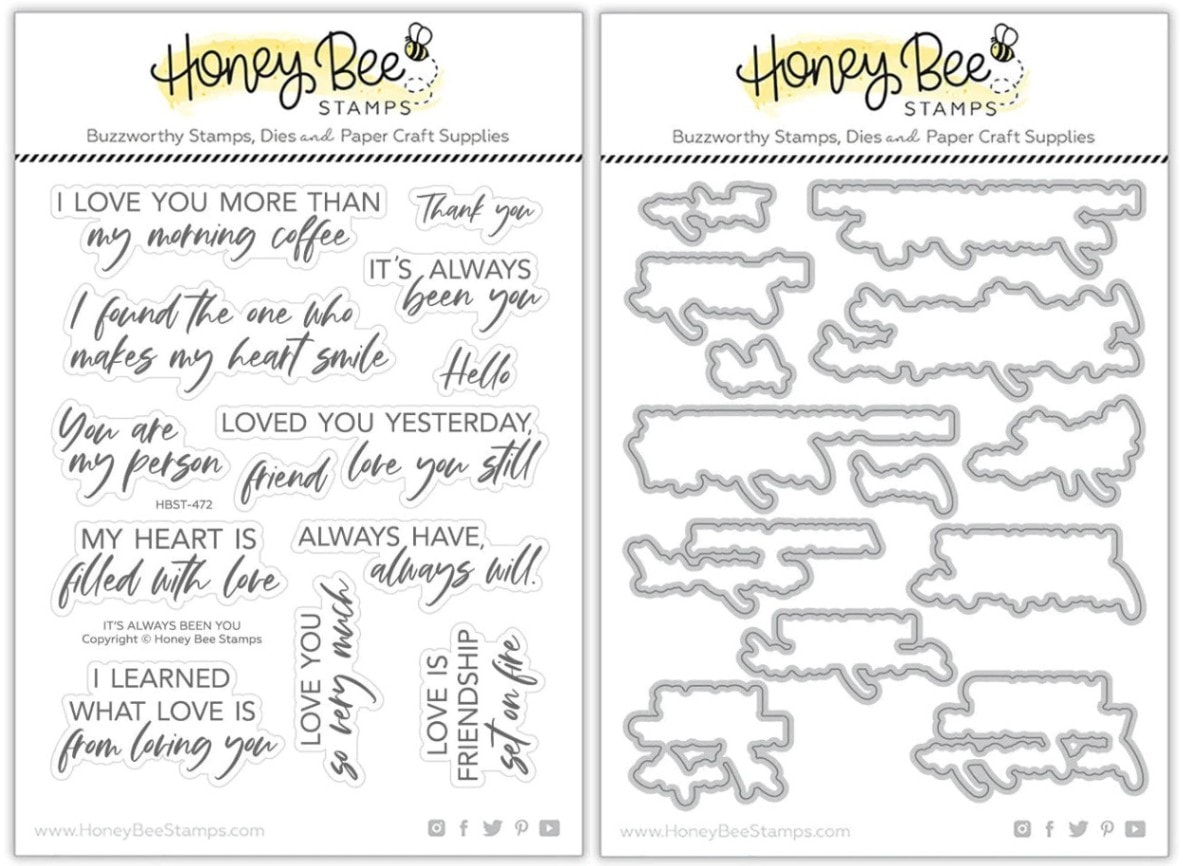 Honey Bee
STAMPS
Buzzworthy Stamps, Dies and Paper Craft Supplies
I LOVE YOU MORE THAN
my morning coffee
Thank you
IT'S ALWAYS
been you
I found the one who
makes my heart smile
Hello
You are
my person
LOVED YOU YESTERDAY,
love you still
friend
HBST-472
MY HEART IS
filled with love
ALWAYS HAVE,
always will.
IT'S ALWAYS BEEN YOU
Copyright © Honey Bee Stamps
I LEARNED
WHAT LOVE IS
from loving you
LOVE YOU
so very much
LOVE IS
FRIENDSHIP
set on fire
www.HoneyBeeStamps.com
Honey Bee
STAMPS
Buzzworthy Stamps, Dies and Paper Craft Supplies
www.HoneyBeeStamps.com